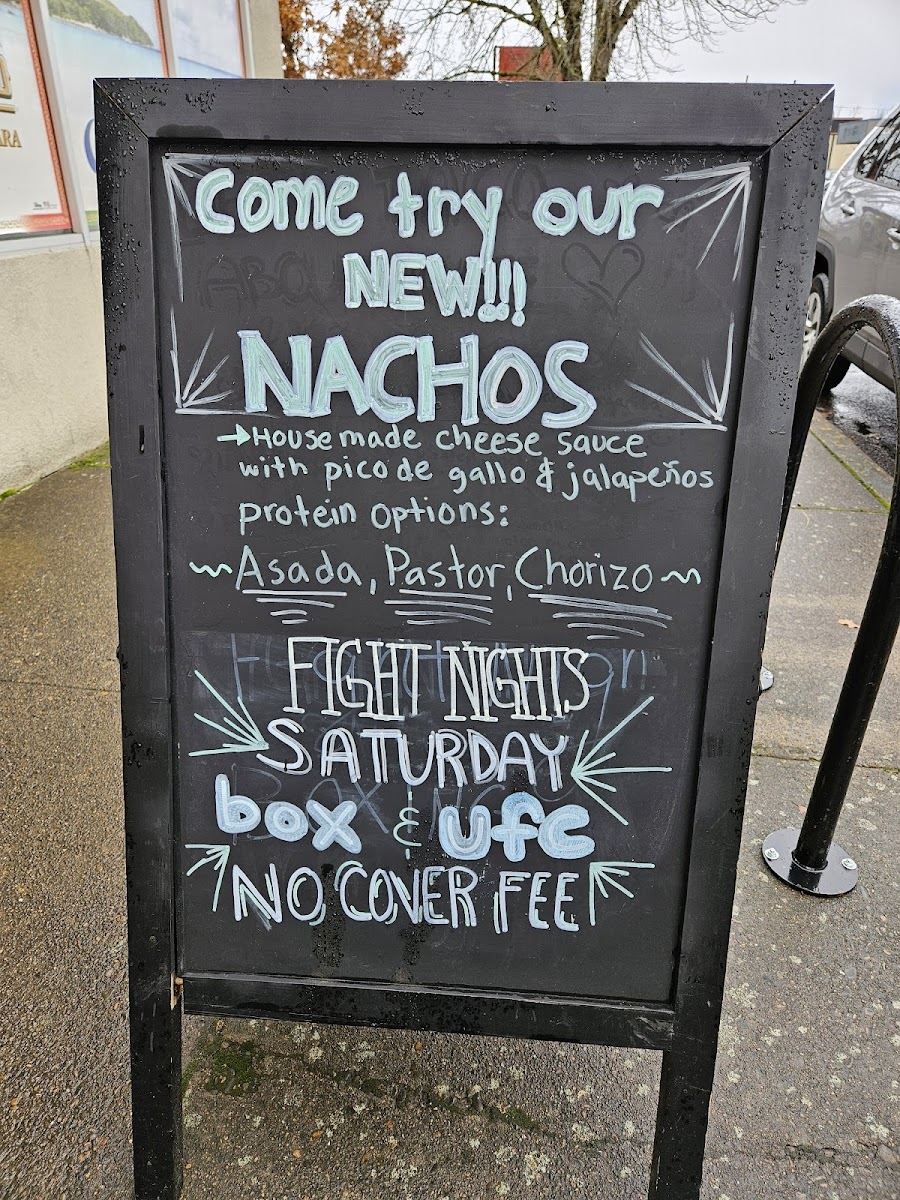 Come try our
NEW!!!
NACHOS
→House made cheese sauce
with pico de gallo & jalapeños
protein options:
~Asada, Pastor, Chorizo~
FIGHT NIGHTS
SATURDAY
box & ufc
NO COVER FEE
ARA